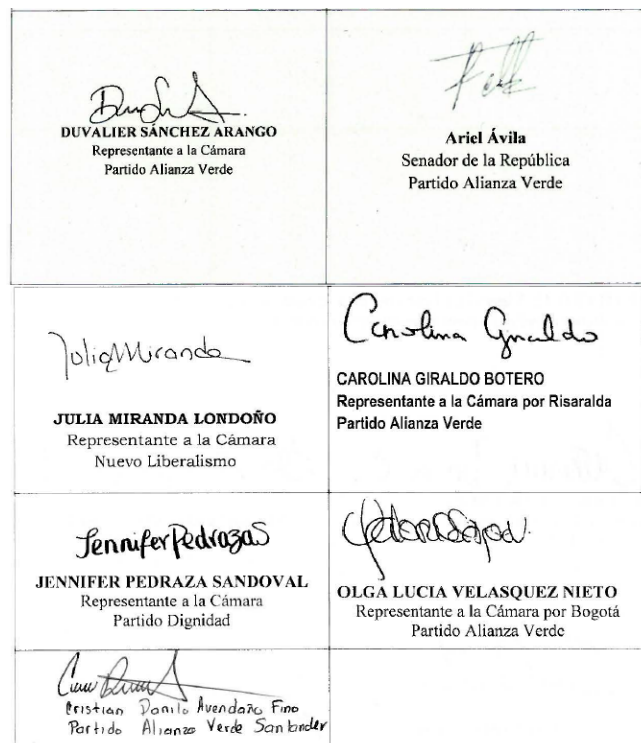 DUVALIER SÁNCHEZ ARANGO
Representante a la Cámara
Partido Alianza Verde
Ariel Ávila
Senador de la República
Partido Alianza Verde
Julia Miranda
JULIA MIRANDA LONDOÑO
Representante a la Cámara
Nuevo Liberalismo
Carolina Giraldo
CAROLINA GIRALDO BOTERO
Representante a la Cámara por Risaralda
Partido Alianza Verde
Jennifer Pedraza S
JENNIFER PEDRAZA SANDOVAL
Representante a la Cámara
Partido Dignidad
OLGA LUCIA VELASQUEZ NIETO
Representante a la Cámara por Bogotá
Partido Alianza Verde
Cristian Danilo Avendaño Fino
Partido Alianza Verde Santander